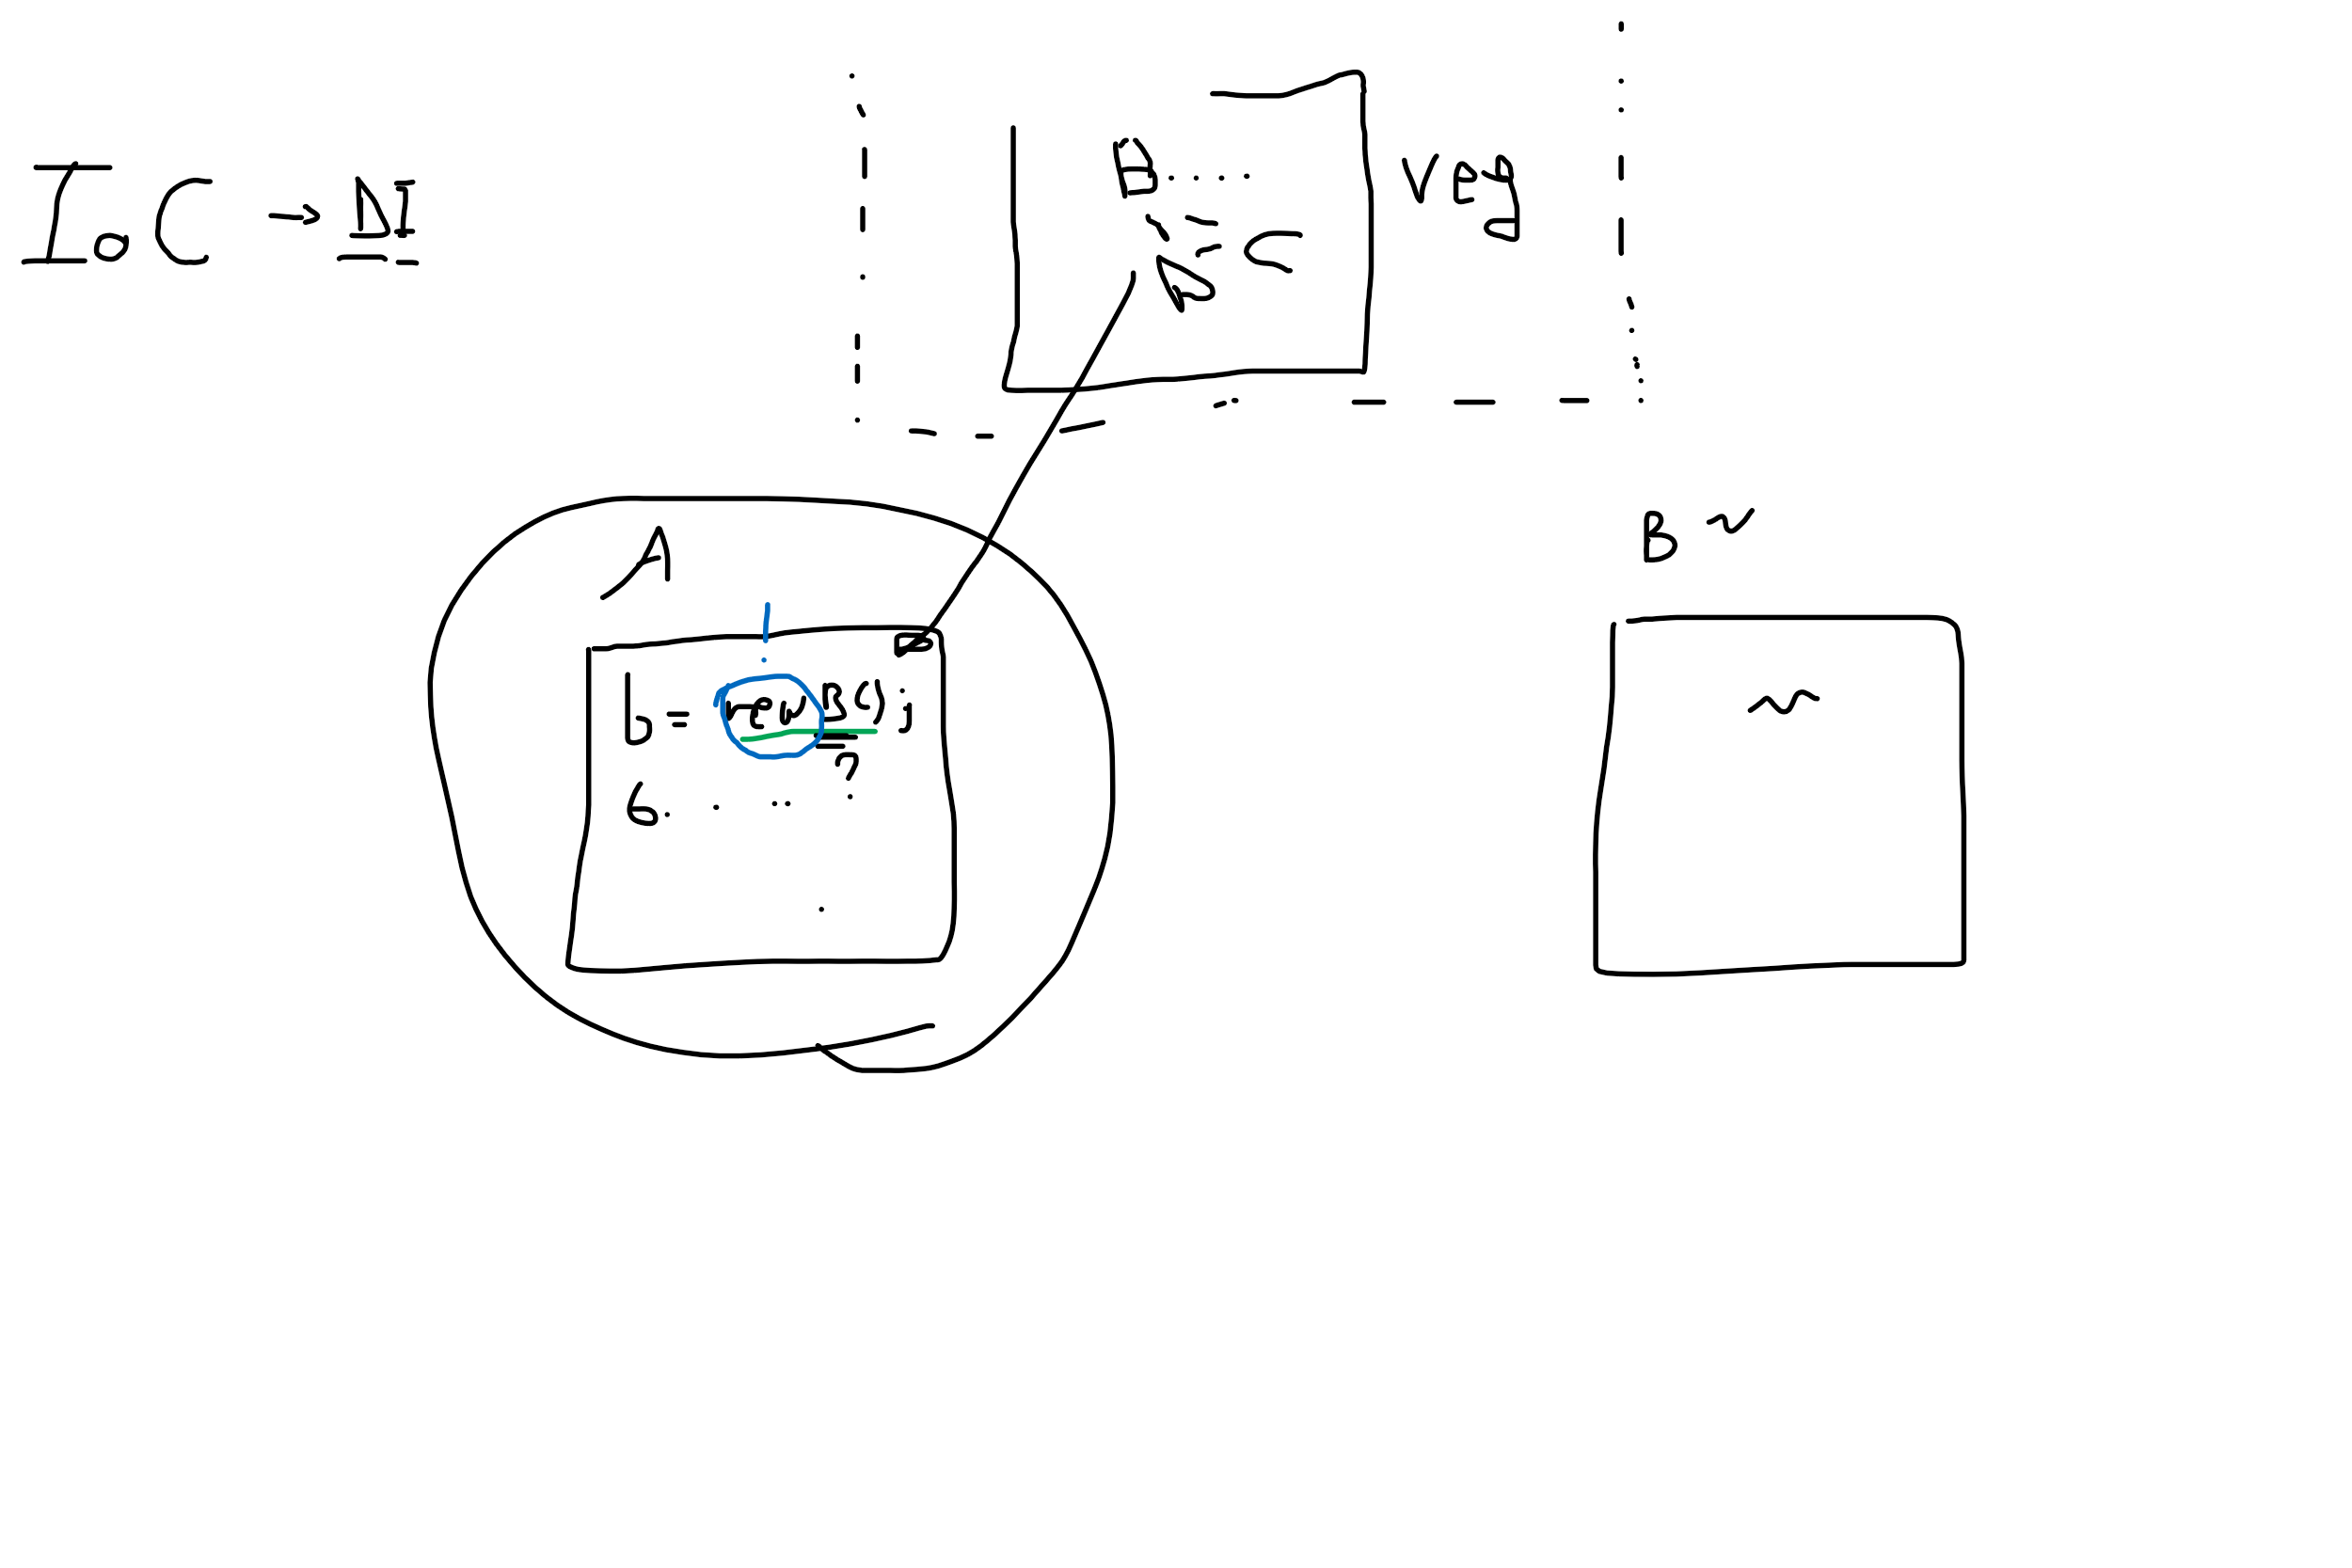 IoC → DI
B....
D = C
Veg
A
b = new B();
?
b. . .. .
B ~
~